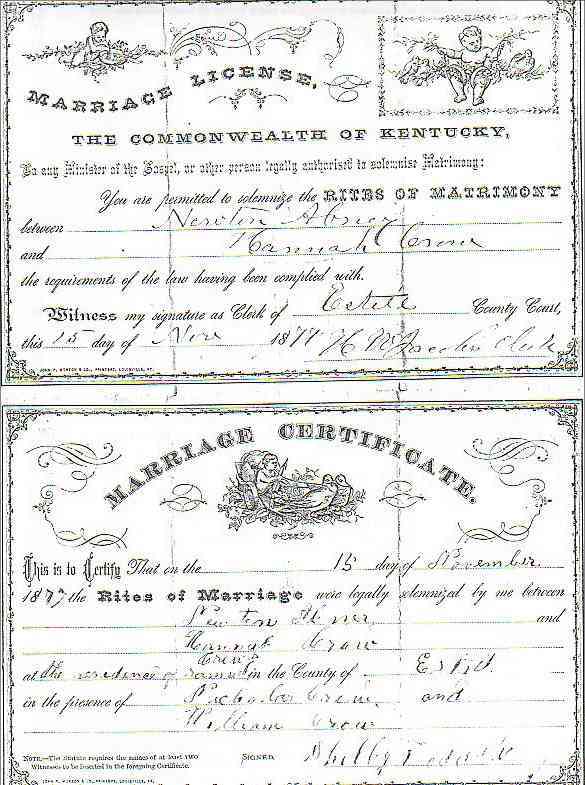 MARRIAGE LICENSE,
THE COMMONWEALTH OF KENTUCKY,
To any Minister of the Gospel, or other person legally authorised to solemnise Matrimony:
You are permitted to solemnize the RITES OF MATRIMONY
between Newton Abner
and Hannah Crow
the requirements of the law having been complied with.
Witness my signature as Clerk of Estill County Court,
this 15 day of Nov 1877 H W Clerk
JOHN P. MORTON & CO., PRINTERS, LOUISVILLE, KY.
MARRIAGE CERTIFICATE.
This is to Certify That on the 15 day of November
1877 the Rites of Marriage were legally solemnized by me between
Newton Abner and
Hannah Crow
at the residence of Crow in the County of Estill
in the presence of Crow and
William Crow
NOTE.—The Statute requires the names of at least TWO
Witnesses to be inserted in the foregoing Certificate.
SIGNED, Shelby
JOHN P. MORTON & CO., PRINTERS, LOUISVILLE, KY.